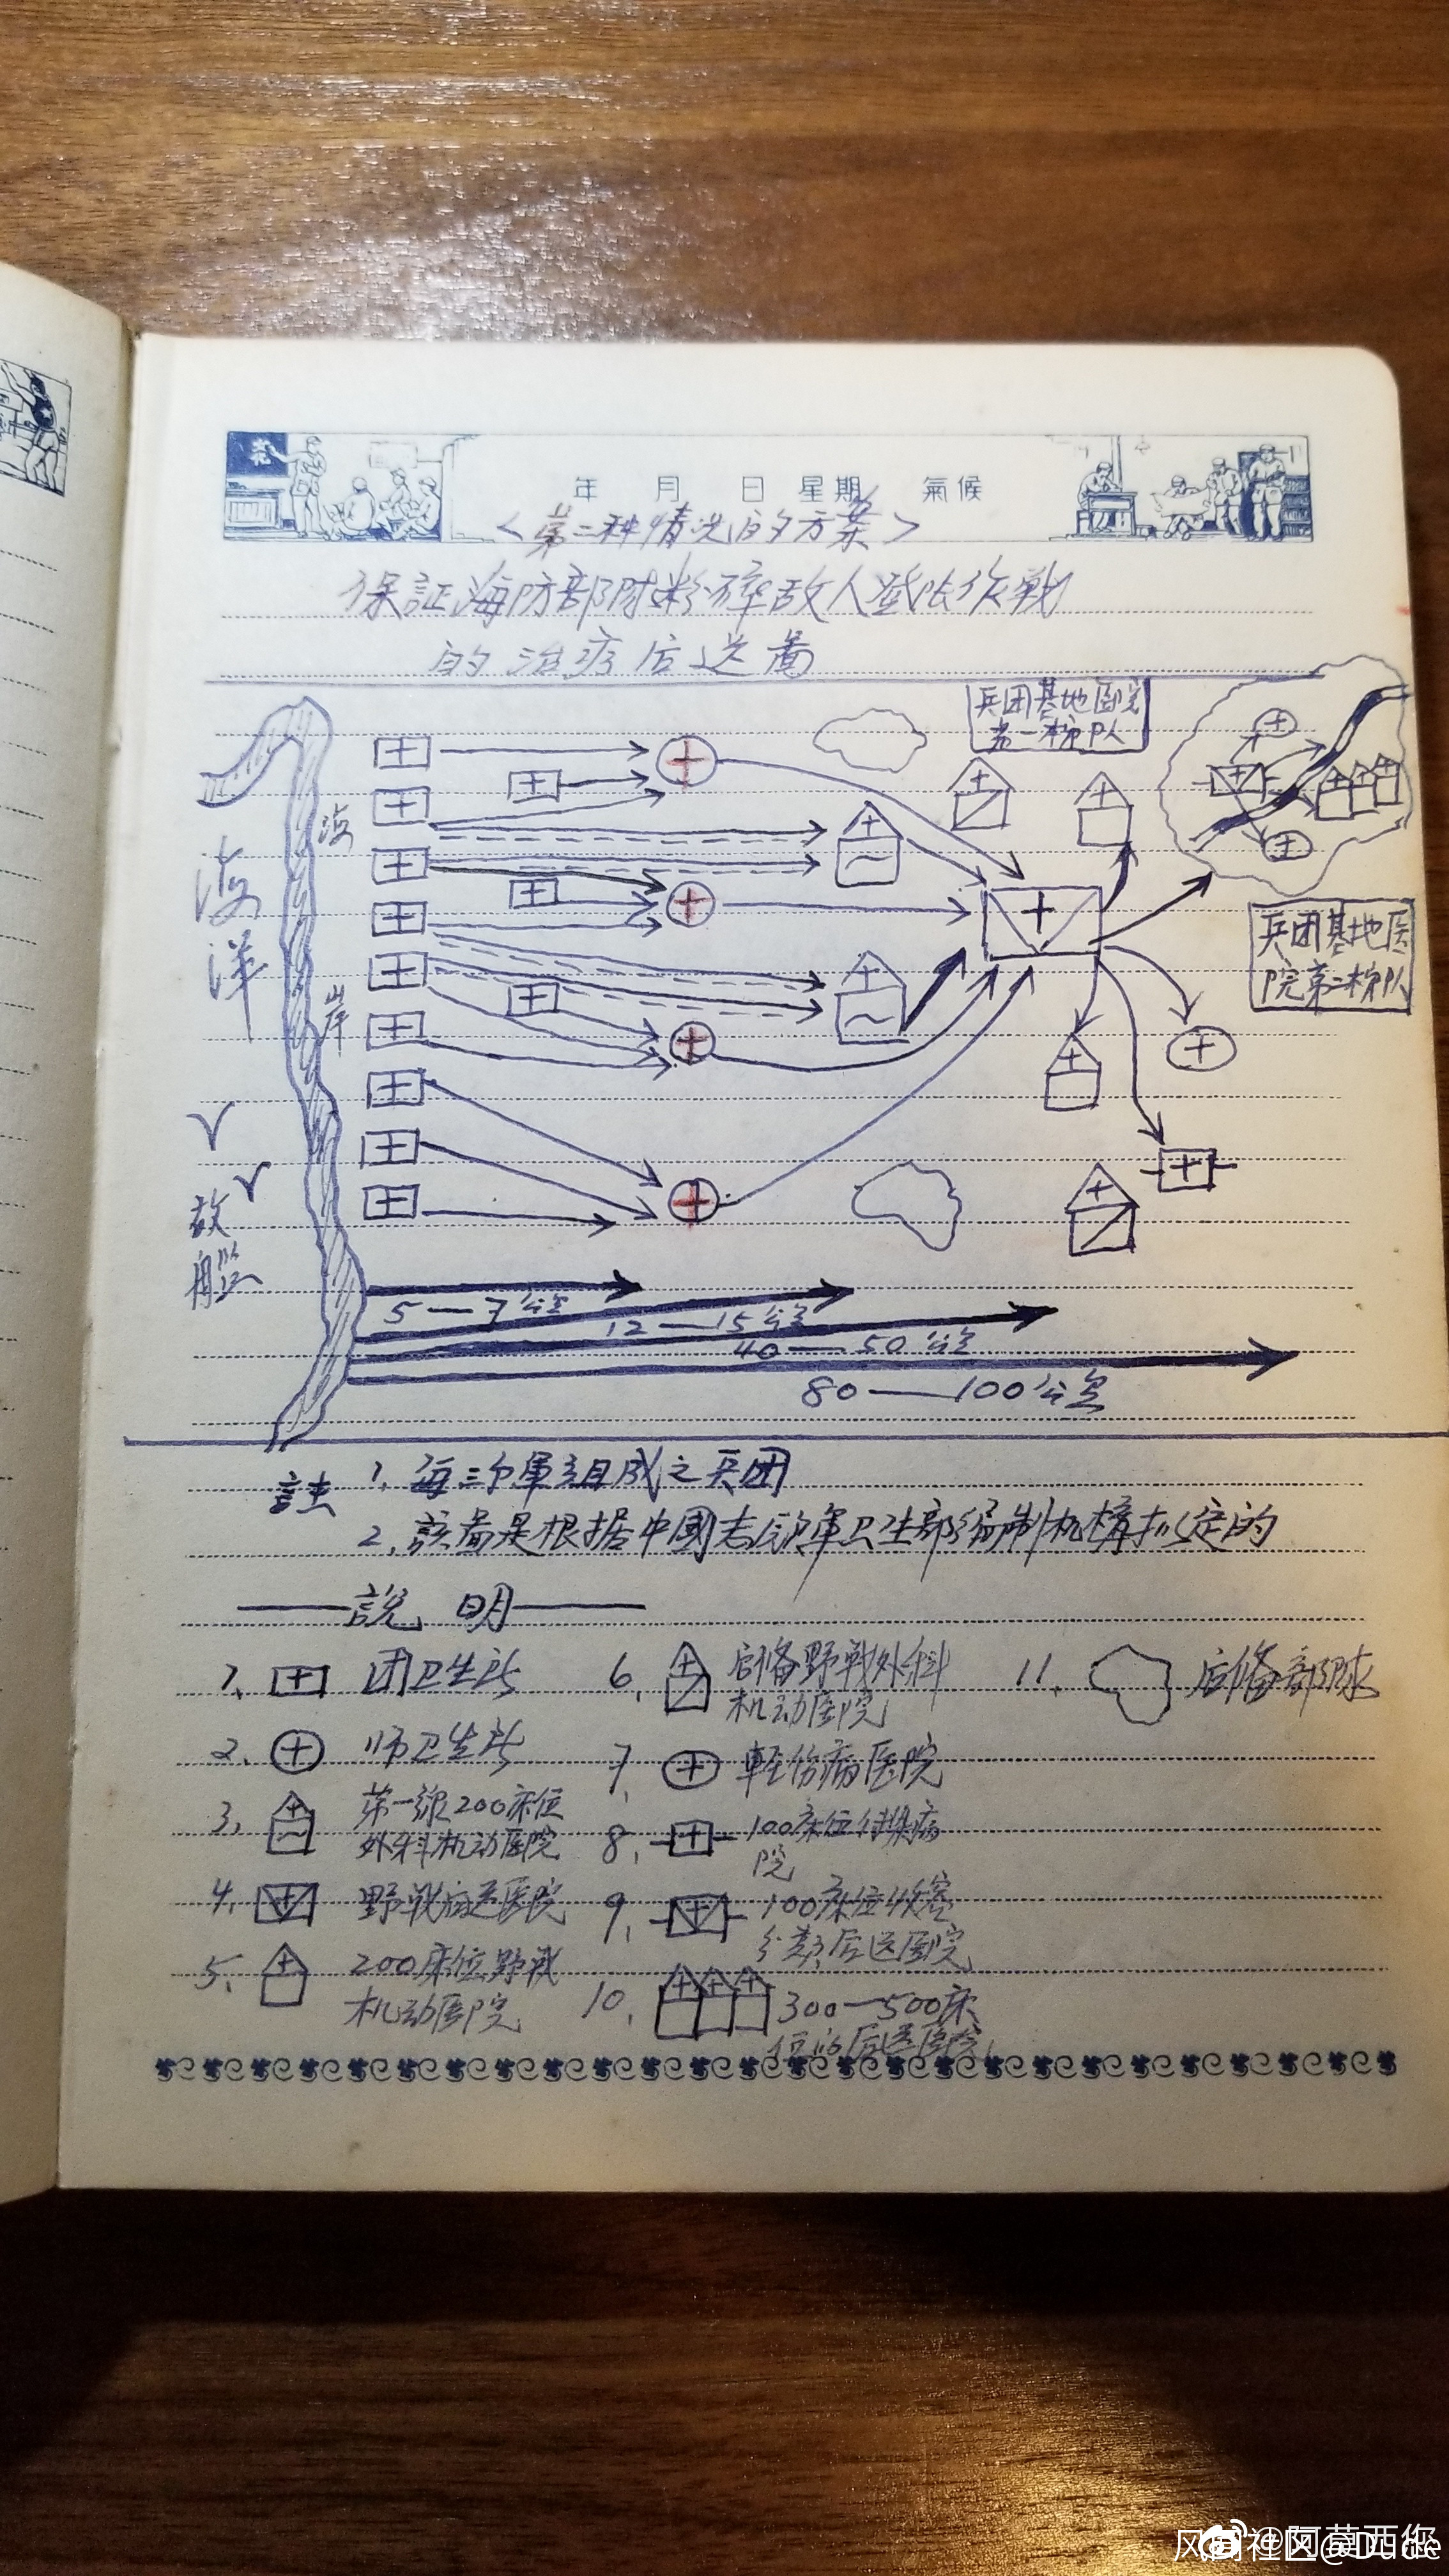 年 月 日 星期 氣候
<第二种情况的方案>
保証海防部队粉碎敌人登陆作戰
的治疗后送畐
兵团基地医院
第一梯队
海
洋
海
岸
兵团基地医
院第二梯队
敌
舰
5—7公里
12—15公里
40—50公里
80—100公里
註 1、每三个軍組成之兵团
2、該畐是根据中國志願軍卫生部编制机構拟定的
——說 明——
1、 团卫生所
2、 师卫生所
3、 第一線200床位
外科机动医院
4、 野戰后送医院
5、 200床位野战
机动医院
6、 后備野戰外科
机动医院
7、 軽伤病医院
8、 100床位传染病
院
9、 100床位收容
分類后送医院
10、 300—500床
位的后送医院
11、 后備部队
@阿莫西您